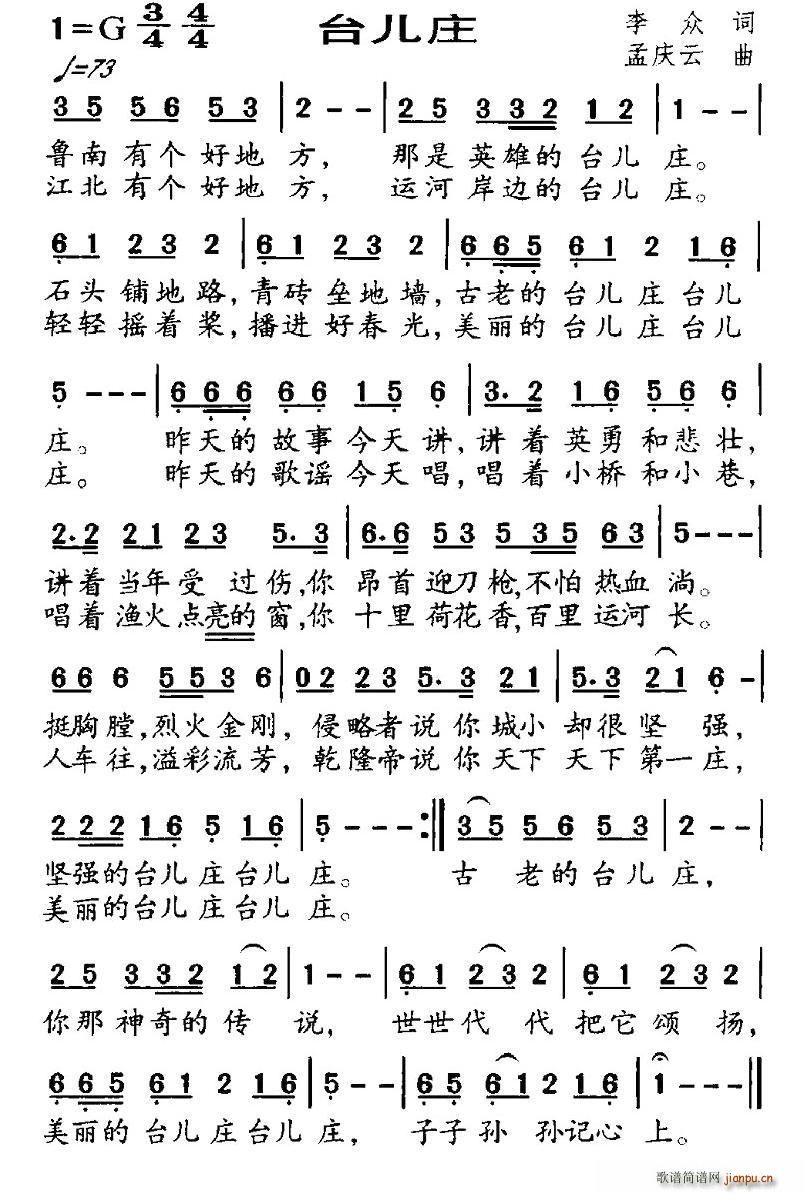 1=G 3/4 4/4 台儿庄 李众 词
♩=73 孟庆云 曲
3 5 5 6 5 3 | 2 - - | 2 5 3 3 2 1 2 | 1 - - |
鲁南有个好地方， 那是英雄的台儿庄。
江北有个好地方， 运河岸边的台儿庄。
6 1 2 3 2 | 6 1 2 3 2 | 6 6 5 6 1 2 1 6 |
石头铺地路，青砖垒地墙，古老的台儿庄台儿
轻轻摇着桨，播进好春光，美丽的台儿庄台儿
5 - - - | 6 6 6 6 6 1 5 6 | 3. 2 1 6 5 6 6 |
庄。 昨天的故事今天讲，讲着英勇和悲壮，
庄。 昨天的歌谣今天唱，唱着小桥和小巷，
2. 2 2 1 2 3 5. 3 | 6. 6 5 3 5 3 5 6 3 | 5 - - - |
讲着当年受过伤，你昂首迎刀枪，不怕热血淌。
唱着渔火点亮的窗，你十里荷花香，百里运河长。
6 6 6 5 5 3 6 | 0 2 2 3 5. 3 2 1 | 5. 3 2 1 6 - |
挺胸膛，烈火金刚，侵略者说你城小却很坚强，
人车往，溢彩流芳，乾隆帝说你天下天下第一庄，
2 2 2 1 6 5 1 6 | 5 - - - :| 3 5 5 6 5 3 | 2 - - |
坚强的台儿庄台儿庄。 古老的台儿庄，
美丽的台儿庄台儿庄。
2 5 3 3 2 1 2 | 1 - - | 6 1 2 3 2 | 6 1 2 3 2 |
你那神奇的传说， 世世代代把它颂扬，
6 6 5 6 1 2 1 6 | 5 - - | 6 5 6 1 2 1 6 | 1 - - ||
美丽的台儿庄台儿庄， 子子孙孙记心上。
歌谱简谱网 jianpu.cn